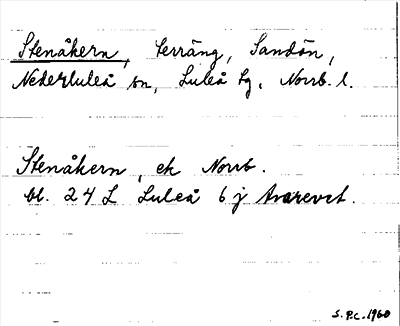 Stenåkern, terräng, Sandön,
Nederluleå sn, Luleå tg, Norrb. l.
Stenåkern, ek Norrb.
bl. 24 L Luleå 6 j Avarevet.
S.P.C. 1960